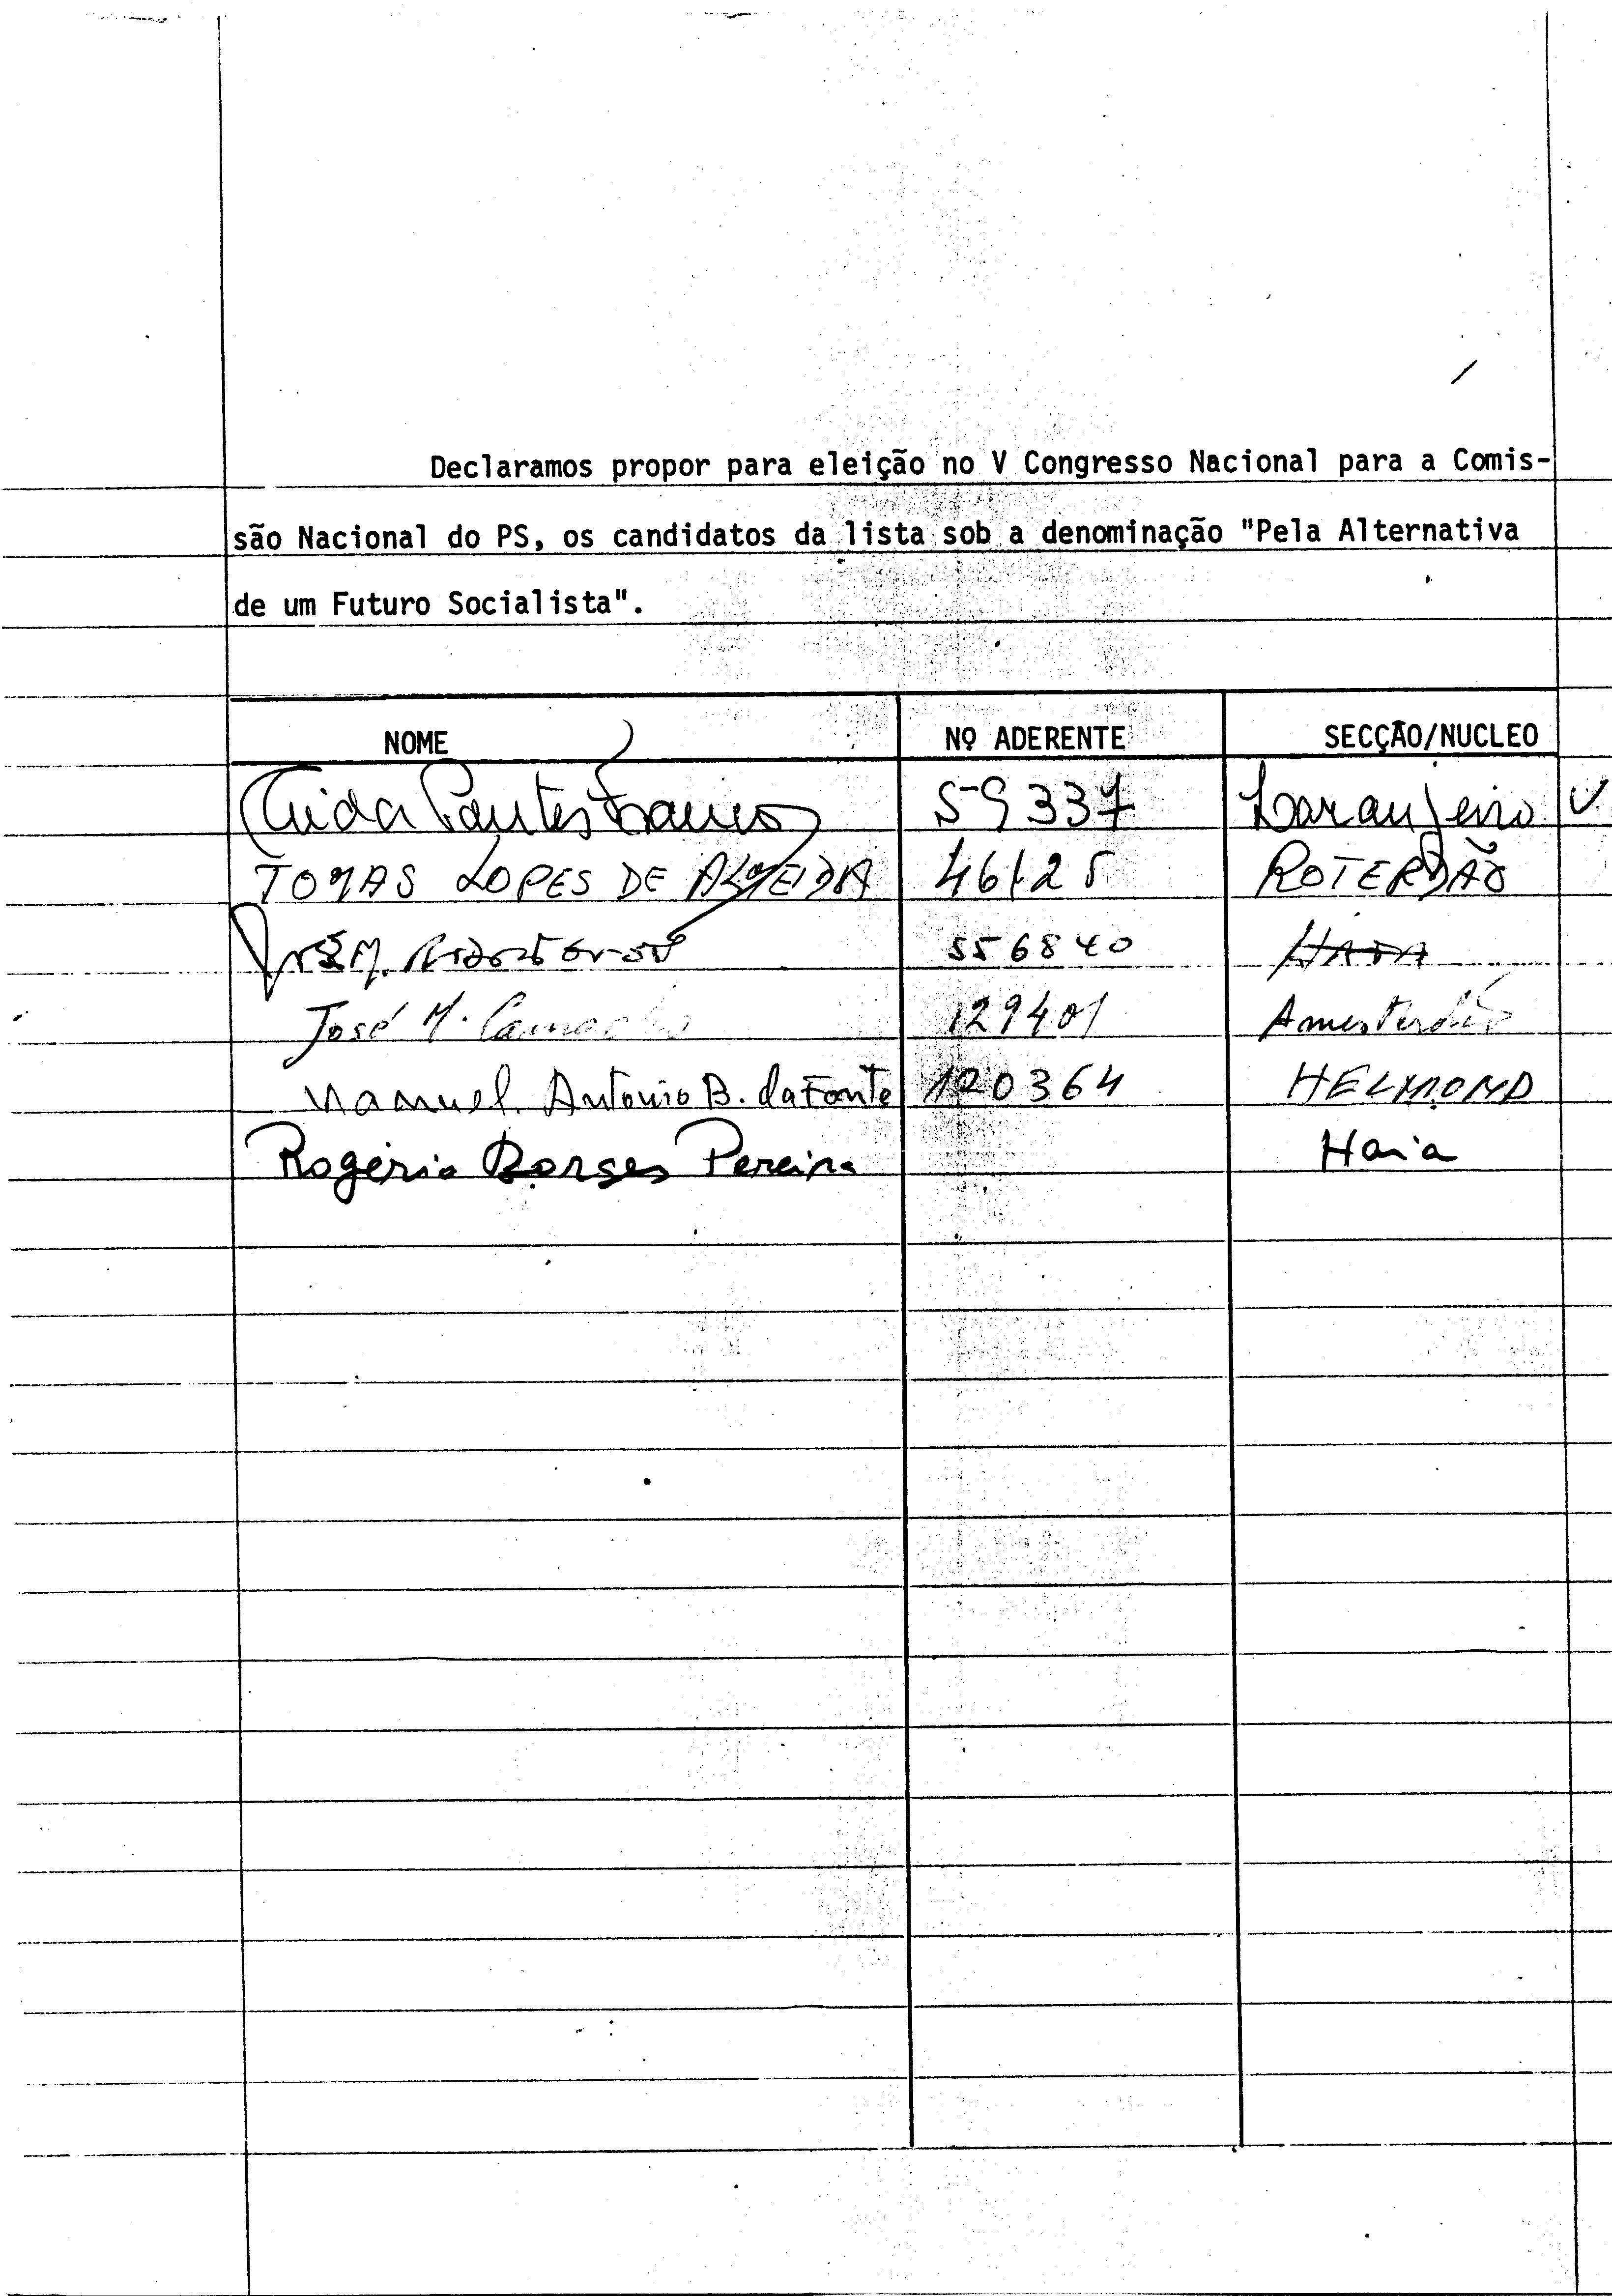 Declaramos propor para eleição no V Congresso Nacional para a Comis-
são Nacional do PS, os candidatos da lista sob a denominação "Pela Alternativa
de um Futuro Socialista".
NOME Nº ADERENTE SECÇÃO/NUCLEO
59337 Laranjeiro
TOMAS LOPES DE ALMEIDA 46125 ROTERDÃO
556840
José M. Camacho 129401 Amesterdão
Manuel Antonio B. da Fonte 120364 HELMOND
Rogério Borges Pereira Haia